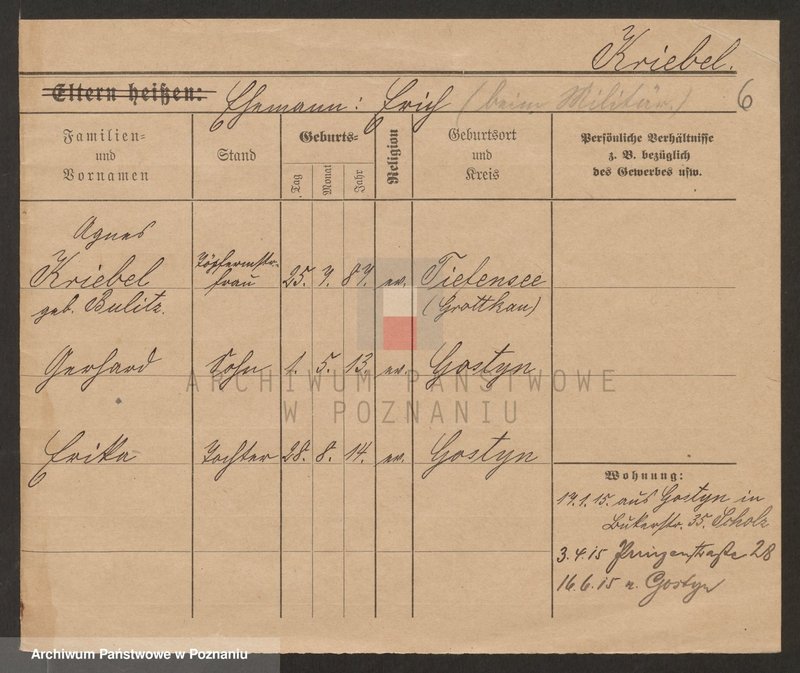 Kriebel.
6
Eltern heißen: Ehemann: Erich (beim Militär.)
Familien= und Vornamen
Stand
Geburts=
Tag
Monat
Jahr
Religion
Geburtsort und Kreis
Persönliche Verhältnisse
z. B. bezüglich
des Gewerbes usw.
Agnes
Kriebel Töpfermstr. 25. 7. 87. ev. Tiefensee
geb. Bulitz. frau (Grottkau)
Gerhard Sohn 1. 5. 13. ev. Gostyn
Erika Tochter 28. 8. 14. ev. Gostyn
Wohnung:
17.1.15. aus Gostyn in
Bukerstr. 35. Scholz
3.4.15 Prinzenstraße 28
16.6.15 n. Gostyn
ARCHIWUM PAŃSTWOWE
W POZNANIU
Archiwum Państwowe w Poznaniu